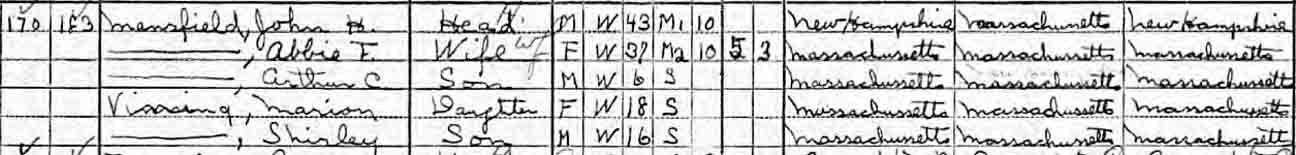 170 183 Mansfield, John H. Head M W 43 M1 10 New Hampshire Massachusetts New Hampshire
———, Abbie F. Wife F W 37 M2 10 5 3 Massachusetts Massachusetts Massachusetts
———, Arthur C Son M W 6 S Massachusetts Massachusetts Massachusetts
Vinning, Marion Daughter F W 18 S Massachusetts Massachusetts Massachusetts
———, Shirley Son M W 16 S Massachusetts Massachusetts Massachusetts